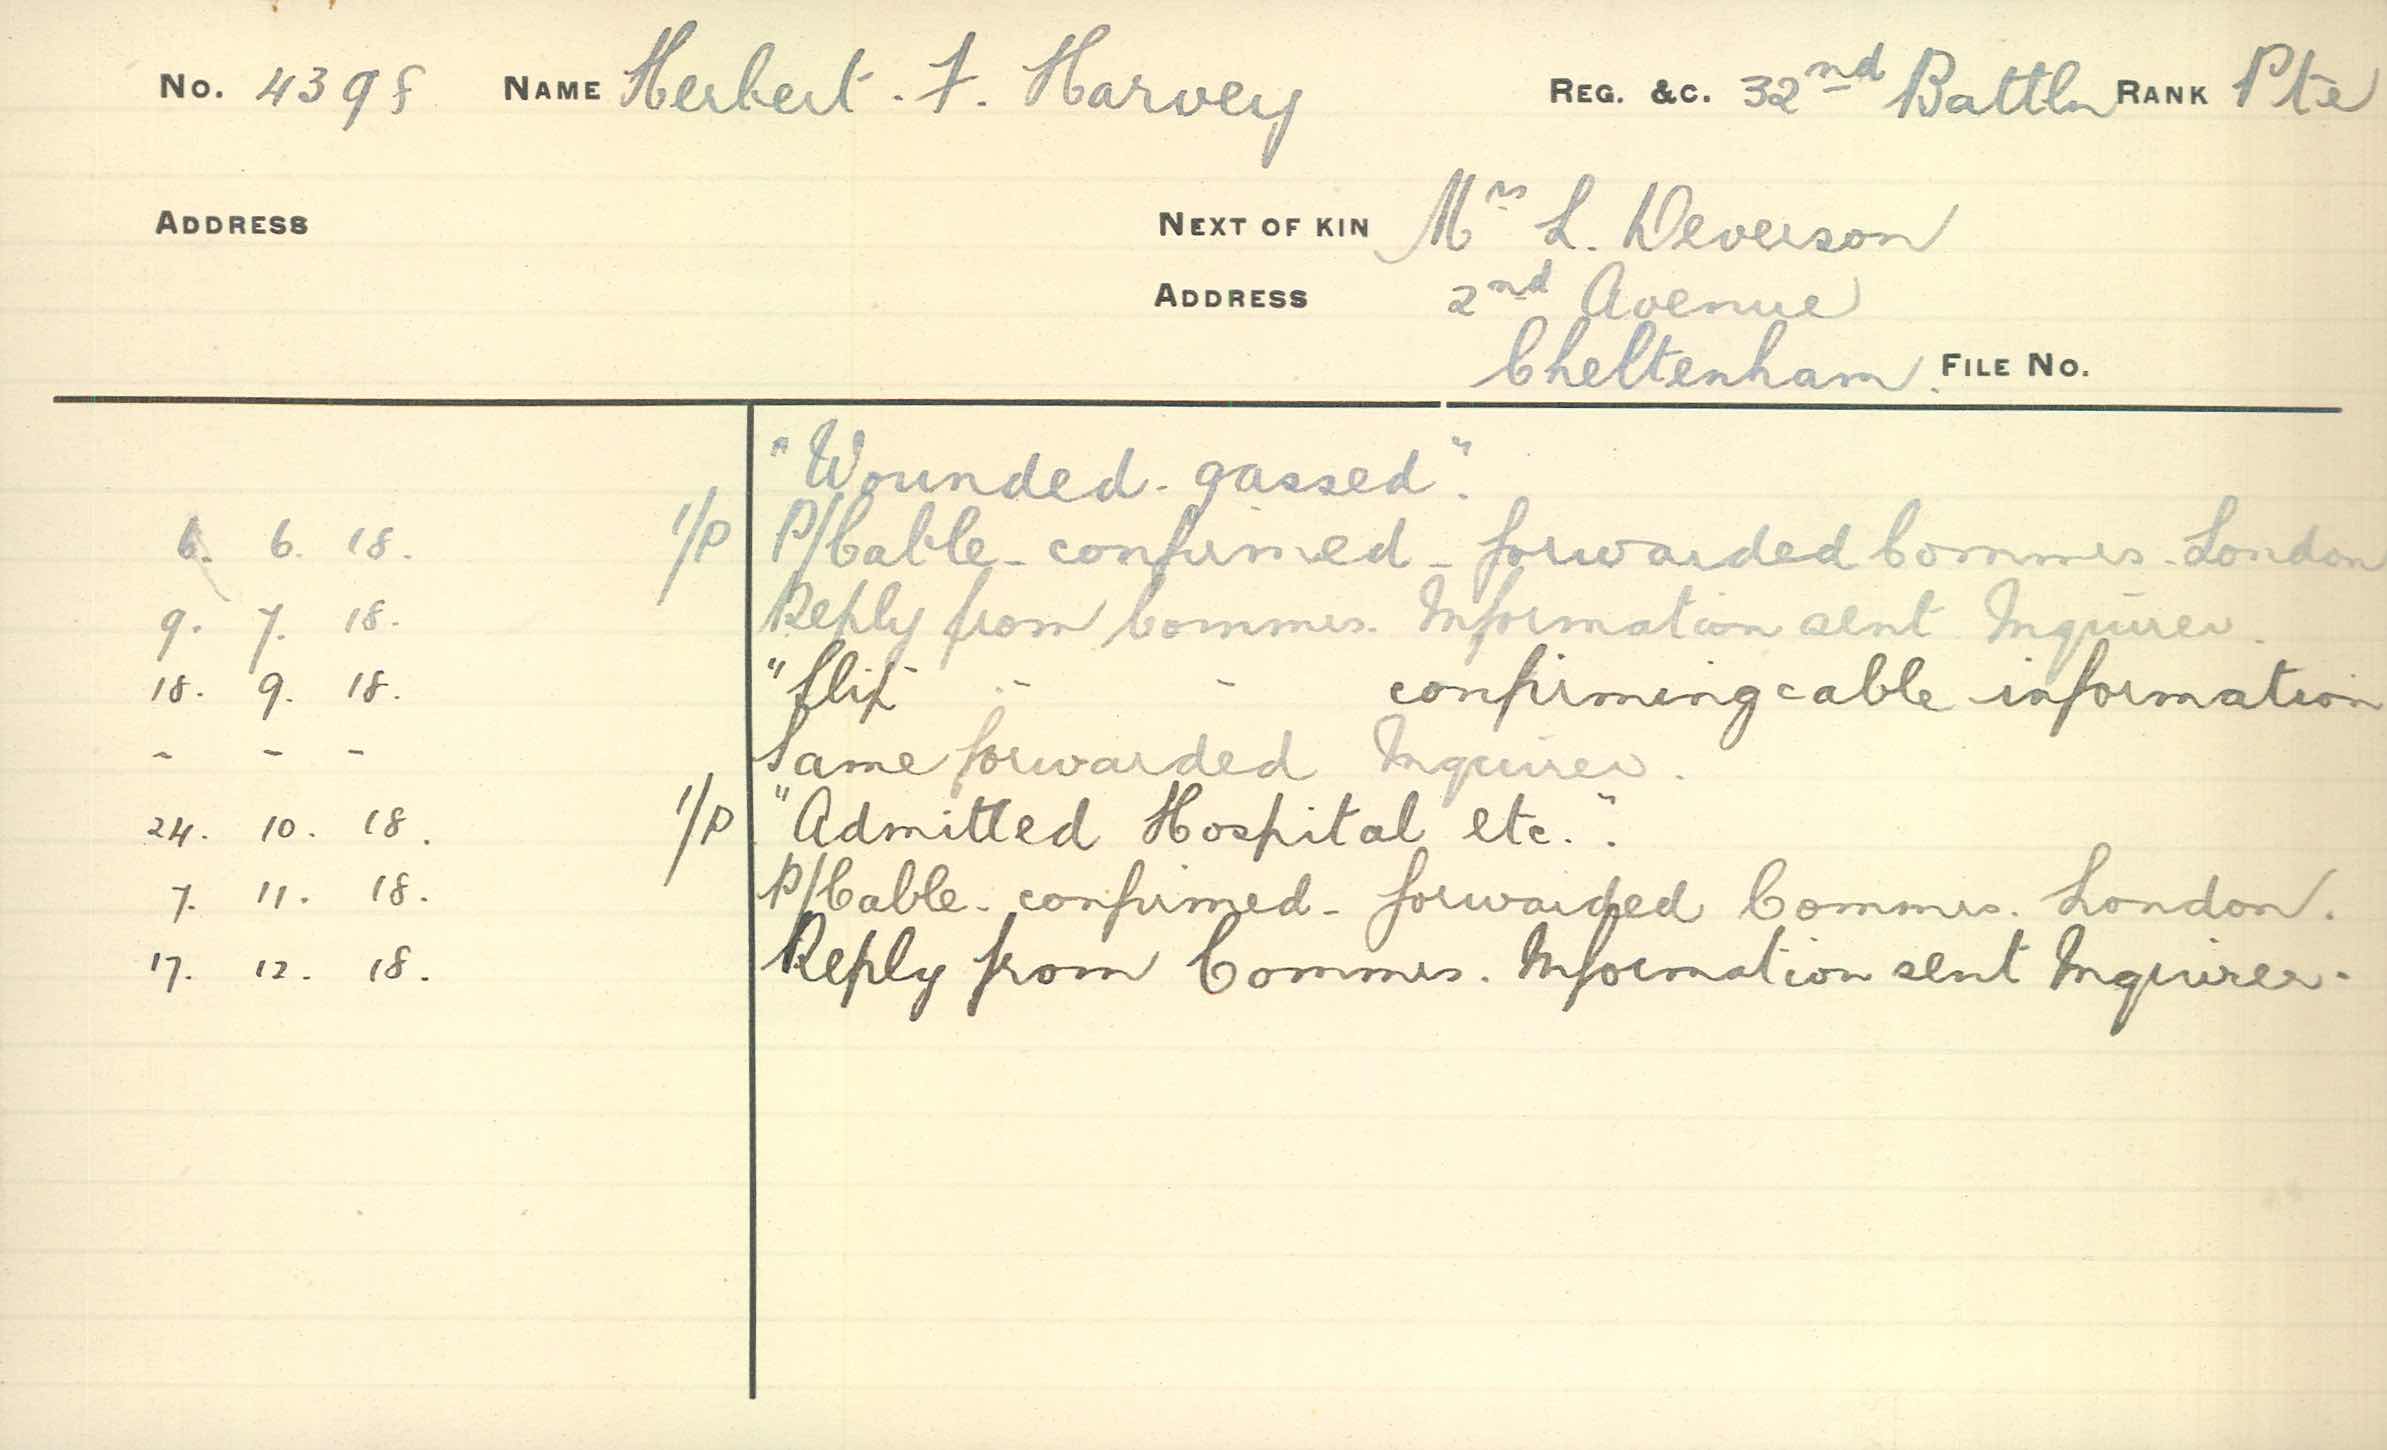 No. 4398 NAME Herbert. F. Harvey REG. &C. 32nd Battln RANK Pte
ADDRESS NEXT OF KIN Mrs L. Deverson
ADDRESS 2nd Avenue
Cheltenham. FILE No.
"Wounded - gassed".
6. 6. 18. 1/P P/Cable - confirmed - forwarded Commrs. London
9. 7. 18. Reply from Commrs. Information sent Inquirer.
18. 9. 18. "Slip - - confirming cable information
- - - Same forwarded Inquirer.
24. 10. 18. 1/P "Admitted Hospital etc.".
7. 11. 18. P/Cable - confirmed - forwarded Commrs. London.
17. 12. 18. Reply from Commrs. Information sent Inquirer.